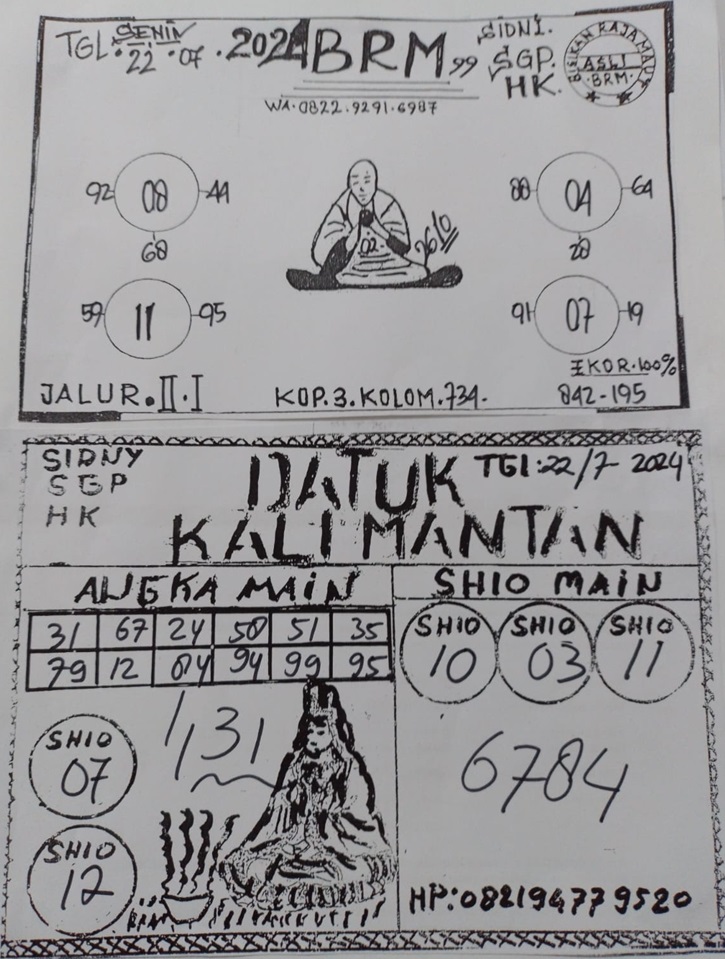 TGL: SENIN
22 · 07 · 2024
BRM 99
SIDNI.
SGP.
HK.
BISIKAN RAJA
ASLI
·BRM·
WA·0822.9291.6987
92 08 44
68
88 04 64
28
02
59 11 95
91 07 19
EKOR·100%
JALUR.II·I
KOP.3.KOLOM.734-
842-195
SIDNY
SGP
HK
DATUK
TGl:22/7-2024
KALIMANTAN
ANGKA MAIN
SHIO MAIN
31 67 24 58 51 35
79 12 84 94 99 95
SHIO
10
SHIO
03
SHIO
11
SHIO
07
SHIO
12
6784
HP:082194779520